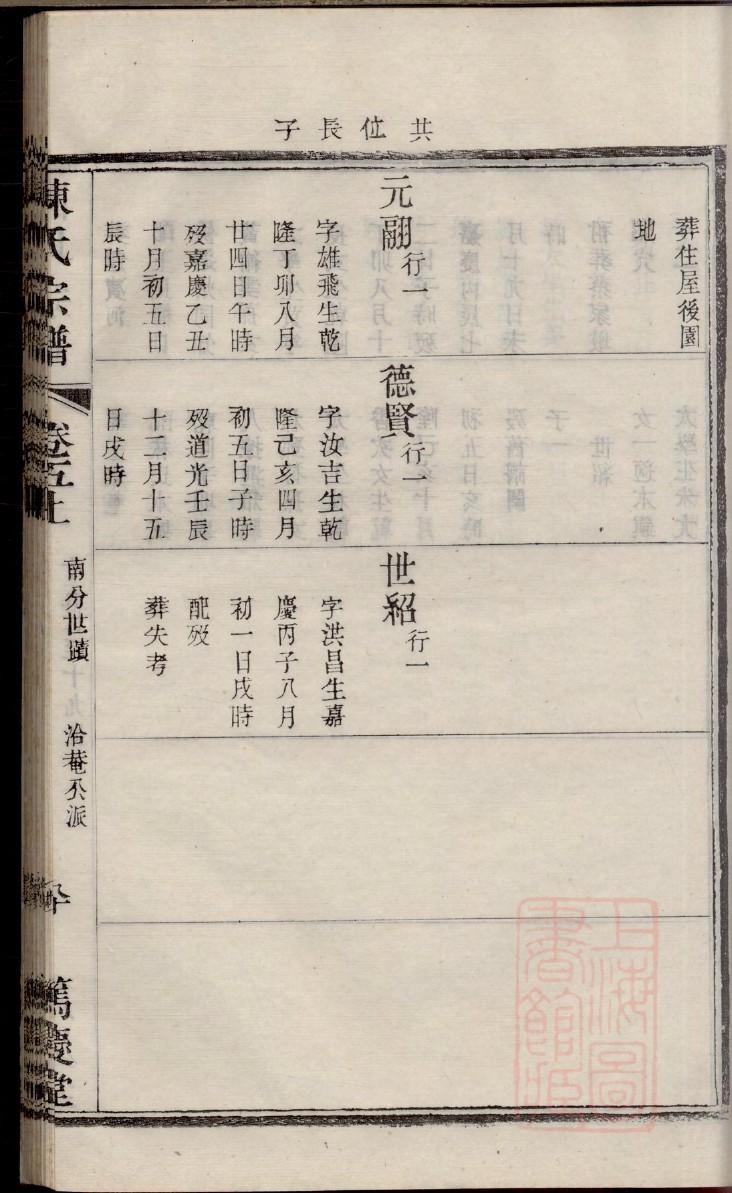 共位長子
葬住屋後園
地
元翮行一
字雄飛生乾
隆丁卯八月
廿四日午時
歿嘉慶乙丑
十月初五日
辰時
德賢行一
字汝吉生乾
隆己亥四月
初五日子時
歿道光壬辰
十二月十五
日戌時
世紹行一
字洪昌生嘉
慶丙子八月
初一日戌時
配歿
葬失考
陳氏宗譜
卷五上
南分世蹟
洽菴公派
篤慶堂
上海圖
書館藏